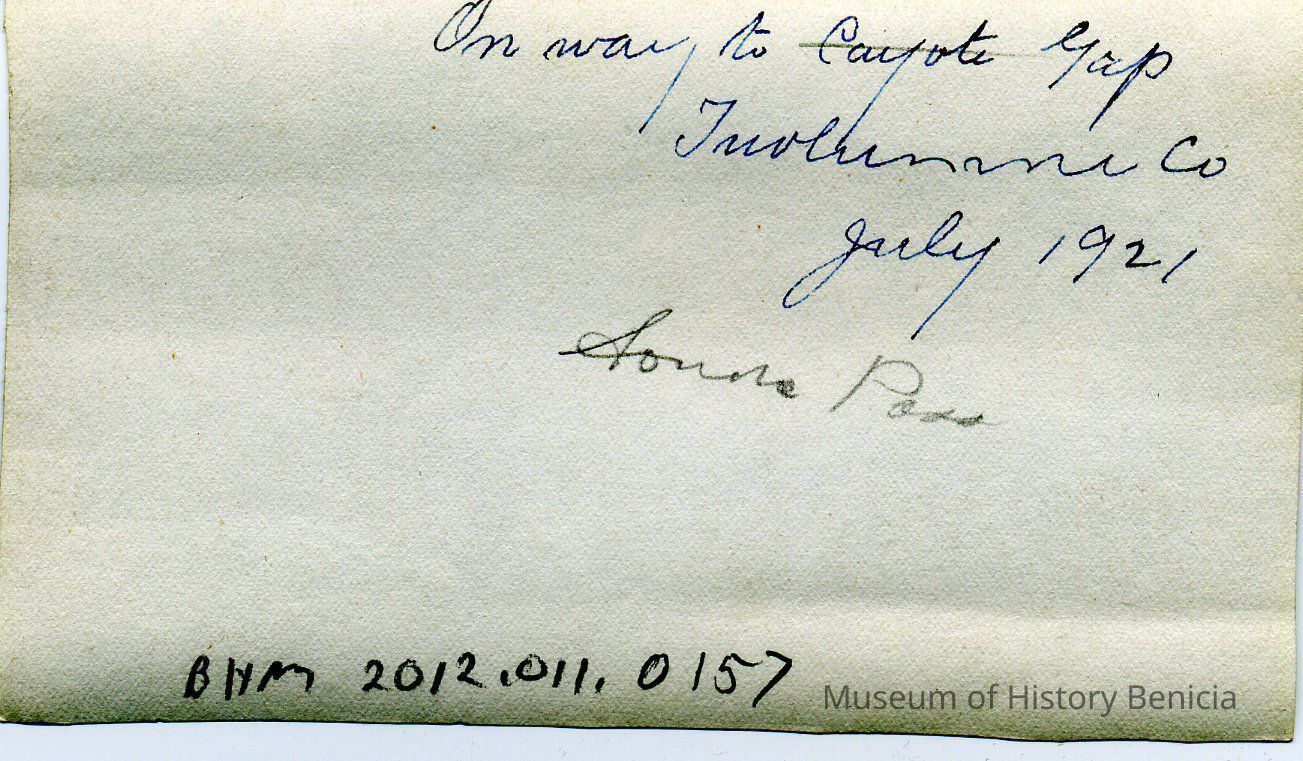 On way to Cayote Gap
Tuolumne Co
July 1921
Sonora Pass
BHM 2012.011.0157
Museum of History Benicia